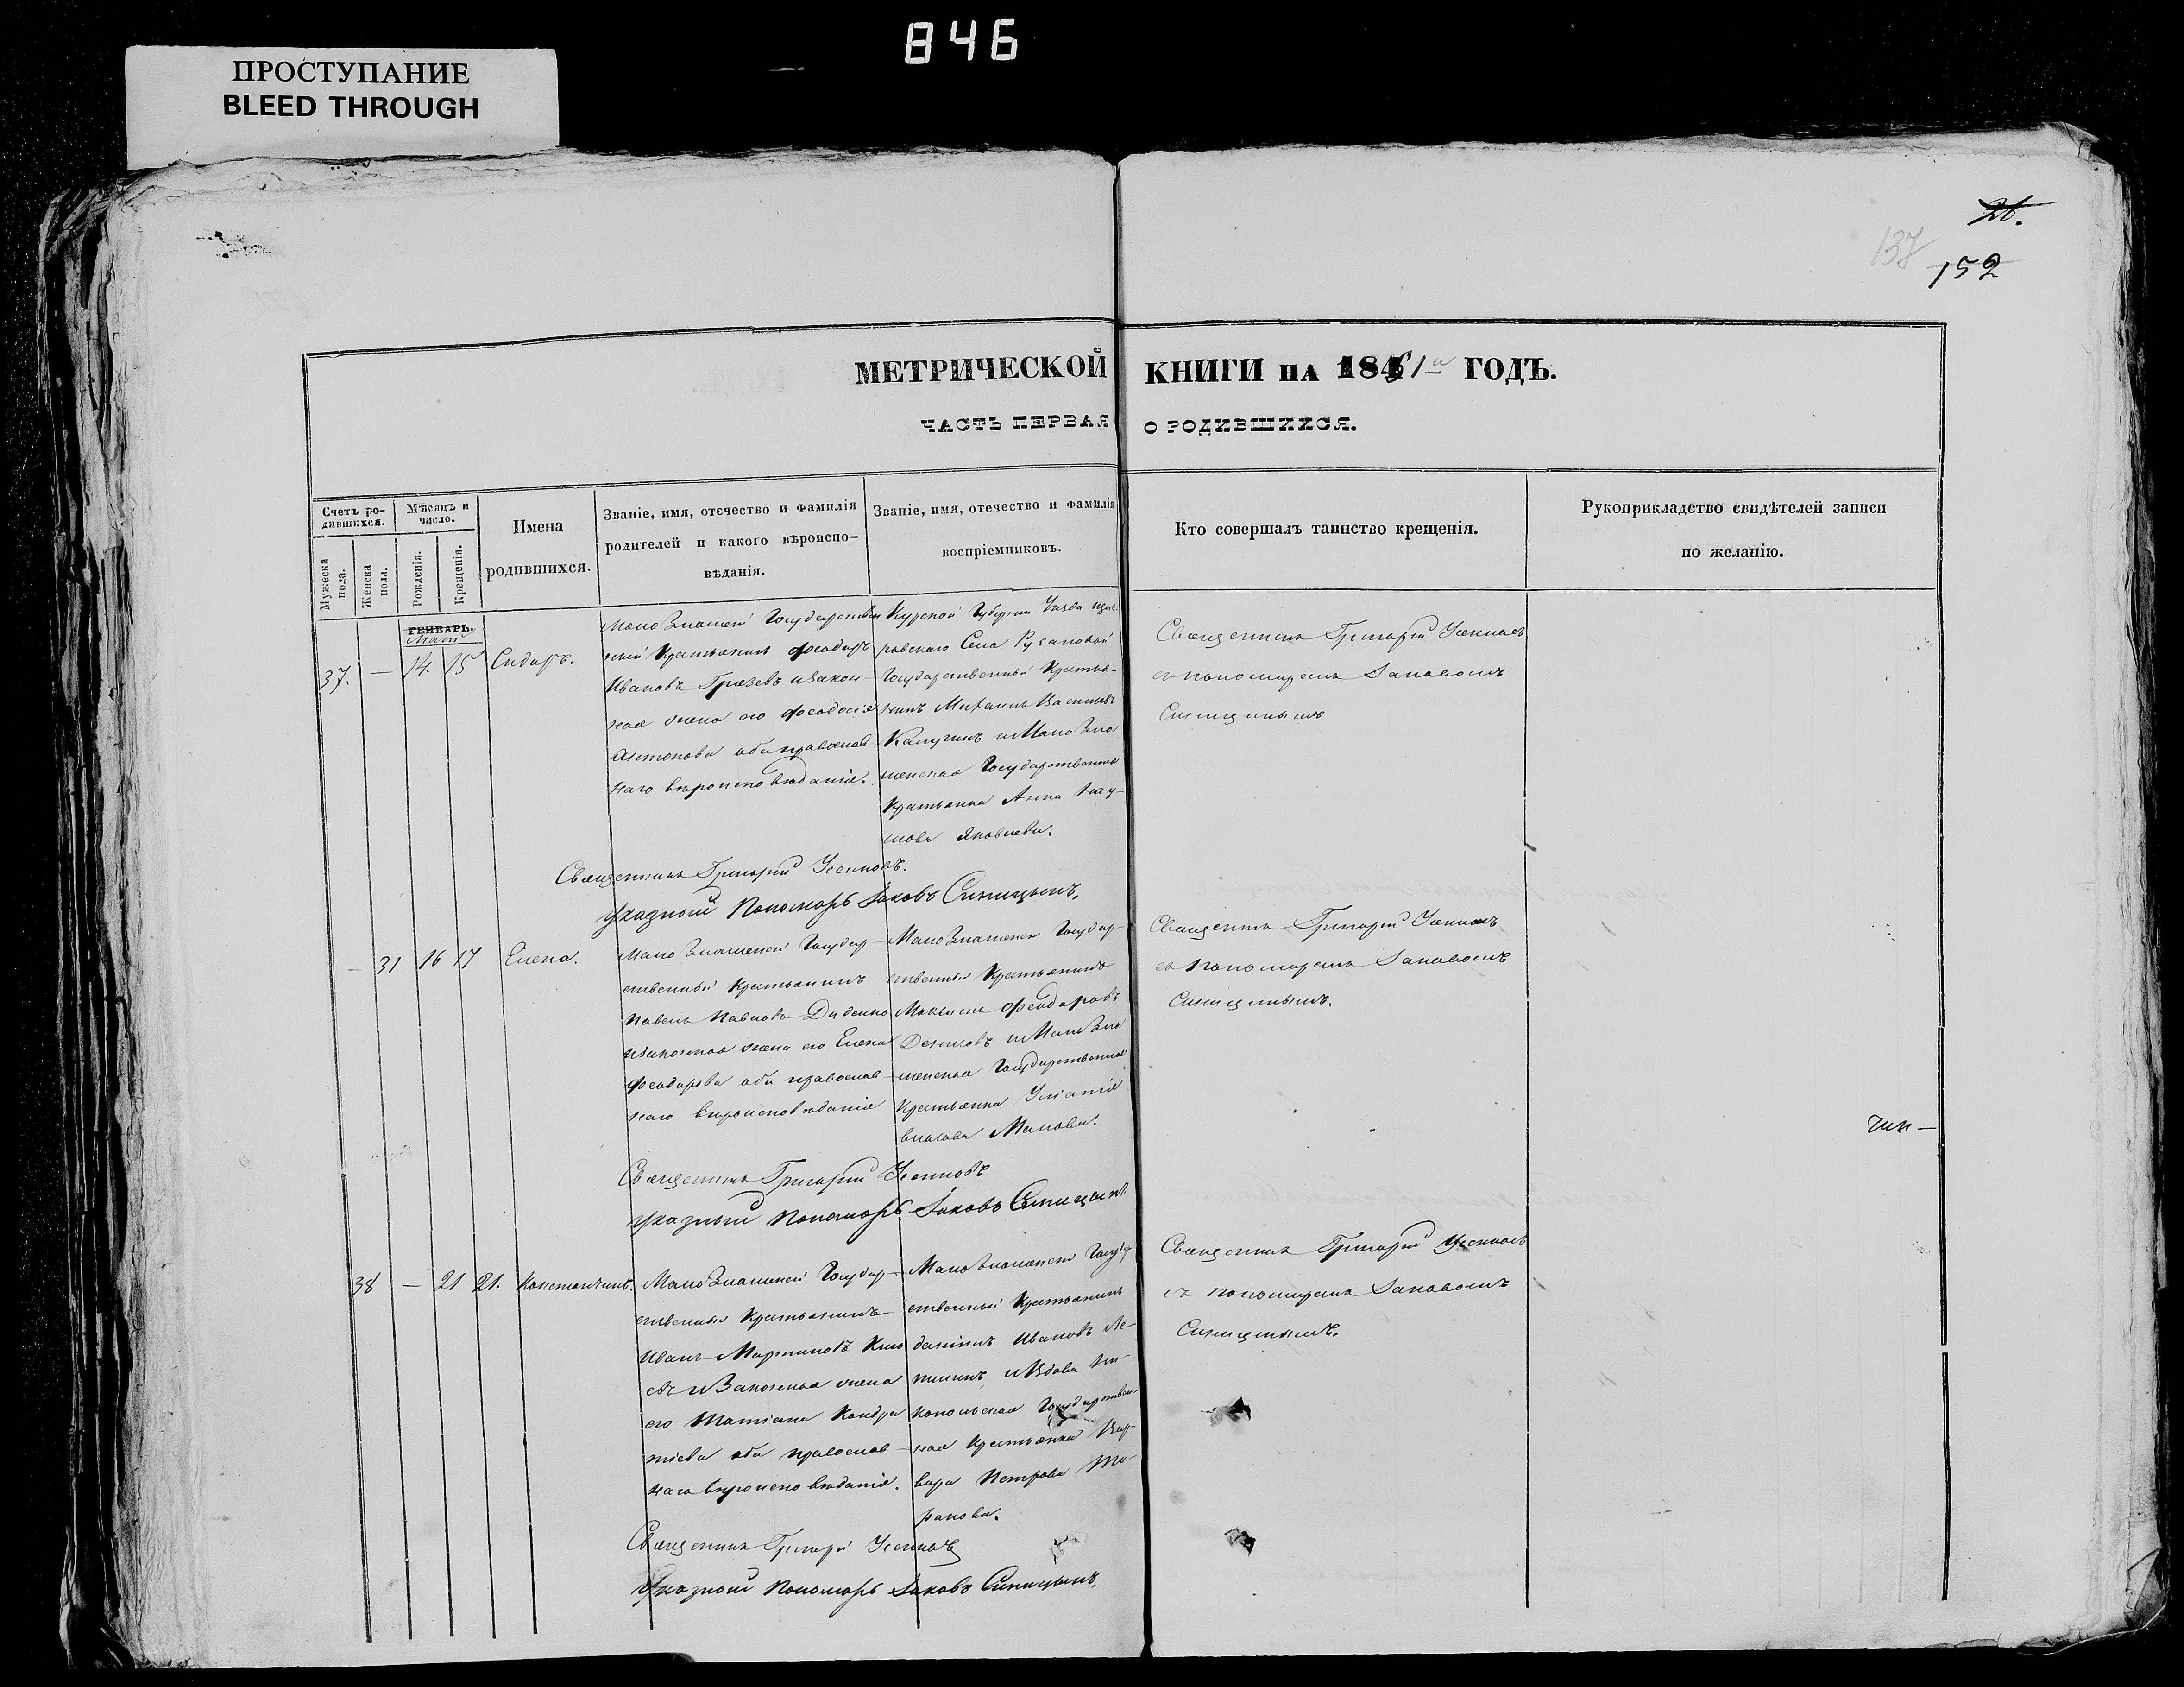 846
ПРОСТУПАНИЕ
BLEED THROUGH
26.
137
152
МЕТРИЧЕСКОЙ КНИГИ НА 1851а ГОДЪ.
ЧАСТЬ ПЕРВАЯ О РОДИВШИХСЯ.
Счетъ ро-
дившихся.
Мужеска пола.
Женска пола.
Мѣсяцъ и
число.
Рожденія.
Крещенія.
Имена
родившихся.
Званіе, имя, отечество и фамилія
родителей и какого вѣроиспо-
вѣданія.
Званіе, имя, отечество и фамилія
воспріемниковъ.
Кто совершалъ таинство крещенія.
Рукоприкладство свидѣтелей записи
по желанію.
ГЕНВАРЬ.
Маій
37.
—
14.
15
Сидоръ.
Мало Знаменей Государствен
ный Крестьянинъ Феодоръ
Ивановъ Грязевъ и закон-
ная жена его Феодосія
Антонова оба православ-
наго вѣроисповѣданія.
Курской Губерніи Уѣзда
Села Русановой
Государственный Крестья-
нинъ Василіевъ
Калугинъ и Мало Зна
менская Государственная
Крестьянка Анна
Яковлева.
Священникъ Григорій
съ пономаремъ Іаковомъ
Синицынымъ
Священникъ Григорій
Указный Пономарь Іаковъ Синицынъ.
—
31
16
17
Елена.
Мало Знаменей Государ-
ственный Крестьянинъ
Павелъ Павловъ Диденко
и законная жена его Елена
Феодорова оба православ-
наго вѣроисповѣданія
Мало Знаменск Государ-
ственный Крестьянинъ
Максимъ Феодоровъ
Денисовъ и Мало Зна
менская Государственная
Крестьянка Уліанія
Власова Макова.
Священникъ Григорій
съ пономаремъ Іаковомъ
Синицынымъ.
чин—
Священникъ Григорій
Указный Пономарь Іаковъ Синицынъ
38
—
21
21.
Константинъ.
Мало Знаменей Государ-
ственный Крестьянинъ
Иванъ Мартиновъ
и Законная жена
его Татіана Кондра
тіева оба православ-
наго вѣроисповѣданія.
Мало Знаменей Государ
ственный Крестьянинъ
Даніилъ Ивановъ
и Вдова Ни-
копольская Государствен-
ная Крестьянка Вар-
вара Петрова Та-
ранова.
Священникъ Григорій
съ пономаремъ Іаковомъ
Синицынымъ.
Священникъ Григорій
Указный Пономарь Іаковъ Синицынъ.